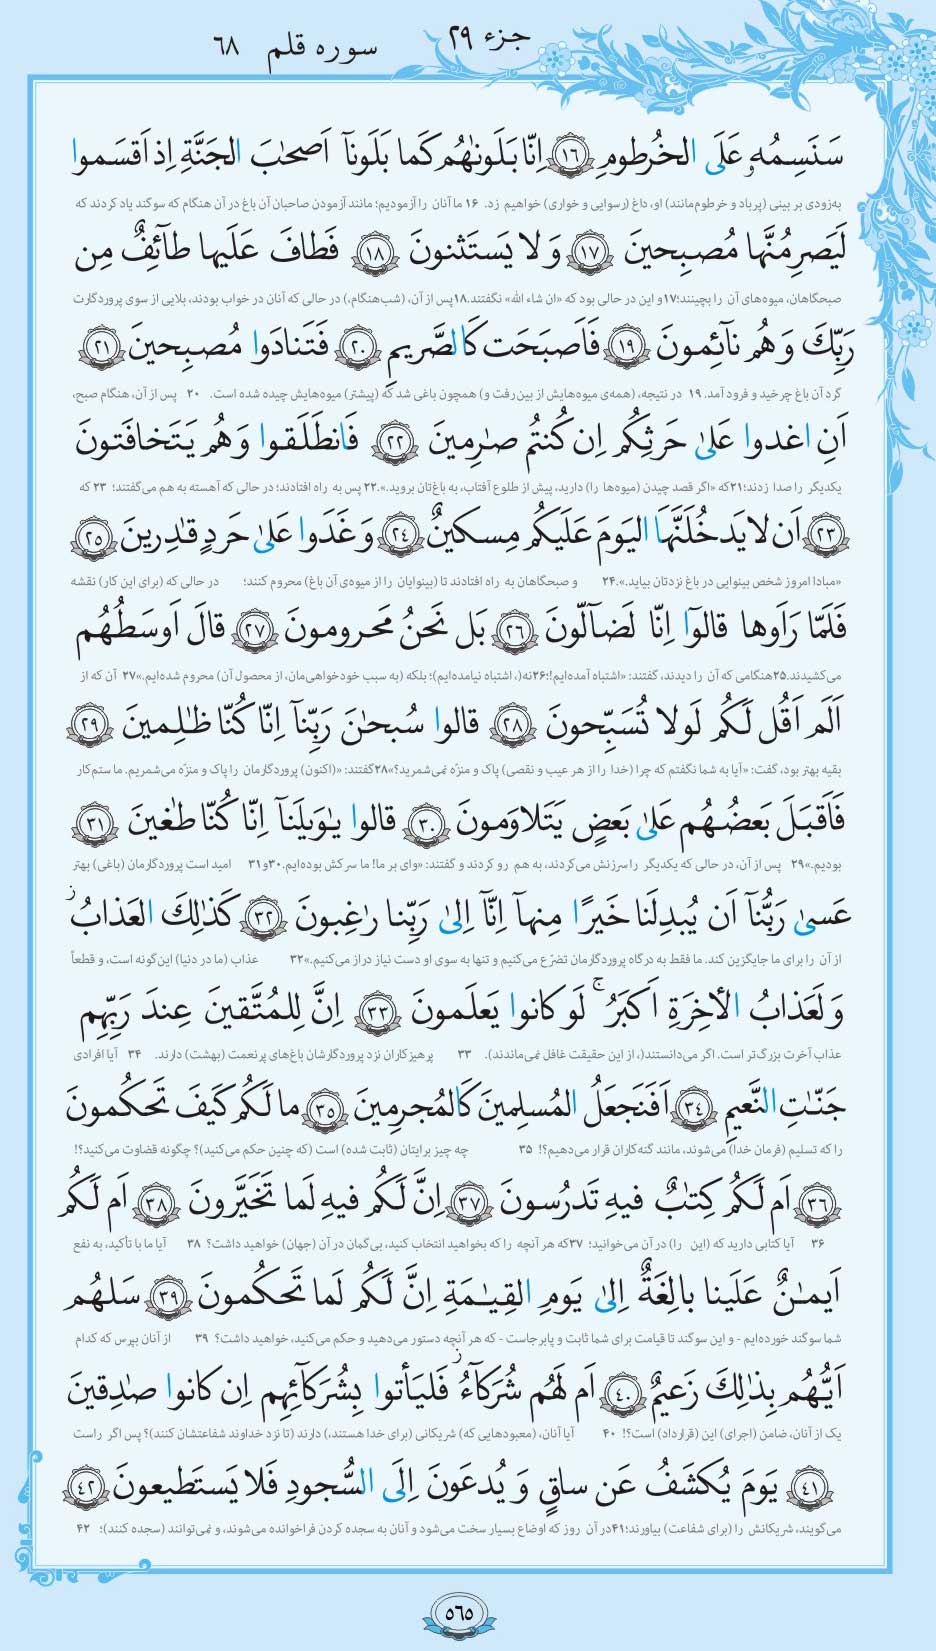 جزء ۲۹
سوره قلم ۶۸
سَنَسِمُهُ عَلَى الخُرطومِ ﴿۱۶﴾ اِنّا بَلَوناهُم كَما بَلَونآ اَصحابَ الجَنَّةِ اِذ اَقسَموا
به‌زودی بر بینی (پرباد و خرطوم‌مانند) او، داغ (رسوایی و خواری) خواهیم زد. ۱۶ ما آنان را آزمودیم؛ مانند آزمودن صاحبان آن باغ در آن هنگام که سوگند یاد کردند که
لَيَصرِمُنَّها مُصبِحينَ ﴿۱۷﴾ وَ لا يَستَثنونَ ﴿۱۸﴾ فَطافَ عَلَيها طآئِفٌ مِن
صبحگاهان، میوه‌های آن را بچینند؛۱۷ و این در حالی بود که «ان شاء الله» نگفتند.۱۸ پس از آن، (شب‌هنگام،) در حالی که آنان در خواب بودند، بلایی از سوی پروردگارت
رَبِّكَ وَ هُم نآئِمونَ ﴿۱۹﴾ فَاَصبَحَت كَالصَّريمِ ﴿۲۰﴾ فَتَنادَوا مُصبِحينَ ﴿۲۱﴾
گرد آن باغ چرخید و فرود آمد. ۱۹ در نتیجه، (همه‌ی میوه‌هایش از بین رفت و) همچون باغی شد که (پیشتر) میوه‌هایش چیده شده است. ۲۰ پس از آن، هنگام صبح،
اَنِ اغدوا عَلىٰ حَرثِكُم اِن كُنتُم صارِمينَ ﴿۲۲﴾ فَانطَلَقوا وَ هُم يَتَخافَتونَ
یکدیگر را صدا زدند؛۲۱ که «اگر قصد چیدن (میوه‌ها را) دارید، پیش از طلوع آفتاب، به باغ‌تان بروید.»۲۲ پس به راه افتادند؛ در حالی که آهسته به هم می‌گفتند؛ ۲۳ که
﴿۲۳﴾ اَن لا يَدخُلَنَّهَا اليَومَ عَلَيكُم مِسكينٌ ﴿۲۴﴾ وَ غَدَوا عَلىٰ حَردٍ قادِرينَ ﴿۲۵﴾
«مبادا امروز شخص بینوایی در باغ نزدتان بیاید.».۲۴ و صبحگاهان به راه افتادند تا (بینوایان را از میوه‌ی آن باغ) محروم کنند؛ در حالی که (برای این کار) نقشه
فَلَمّا رَاَوها قالوٓا اِنّا لَضآلّونَ ﴿۲۶﴾ بَل نَحنُ مَحرومونَ ﴿۲۷﴾ قالَ اَوسَطُهُم
می‌کشیدند.۲۵ هنگامی که آن را دیدند، گفتند: «اشتباه آمده‌ایم!؛۲۶ نه(، اشتباه نیامده‌ایم)؛ بلکه (به سبب خودخواهی‌مان، از محصول آن) محروم شده‌ایم.»۲۷ آن که از
اَلَم اَقُل لَكُم لَولا تُسَبِّحونَ ﴿۲۸﴾ قالوا سُبحانَ رَبِّنآ اِنّا كُنّا ظالِمينَ ﴿۲۹﴾
بقیه بهتر بود، گفت: «آیا به شما نگفتم که چرا (خدا را از هر عیب و نقصی) پاک و منزّه نمی‌شمرید؟»۲۸ گفتند: «(اکنون) پروردگارمان را پاک و منزّه می‌شمریم. ما ستم‌کار
فَاَقبَلَ بَعضُهُم عَلىٰ بَعضٍ يَتَلاوَمونَ ﴿۳۰﴾ قالوا ياوَيلَنآ اِنّا كُنّا طاغينَ ﴿۳۱﴾
بودیم.»۲۹ پس از آن، در حالی که یکدیگر را سرزنش می‌کردند، به هم رو کردند و گفتند: «وای بر ما! ما سرکش بوده‌ایم.۳۰ و۳۱ امید است پروردگارمان (باغی) بهتر
عَسىٰ رَبُّنآ اَن يُبدِلَنا خَيرًا مِنهآ اِنّآ اِلىٰ رَبِّنا راغِبونَ ﴿۳۲﴾ كَذٰلِكَ العَذابُ ز
از آن را برای ما جایگزین کند. ما فقط به درگاه پروردگارمان تضرّع می‌کنیم و تنها به سوی او دست نیاز دراز می‌کنیم.»۳۲ عذاب (ما در دنیا) این‌گونه است، و قطعاً
وَ لَعَذابُ الأخِرَةِ اَكبَرُ ج لَو كانوا يَعلَمونَ ﴿۳۳﴾ اِنَّ لِلمُتَّقينَ عِندَ رَبِّهِم
عذاب آخرت بزرگ‌تر است. اگر می‌دانستند(، از این حقیقت غافل نمی‌ماندند). ۳۳ پرهیزکاران نزد پروردگارشان باغ‌های پرنعمت (بهشت) دارند. ۳۴ آیا افرادی
جَنّاتِ النَّعيمِ ﴿۳۴﴾ اَفَنَجعَلُ المُسلِمينَ كَالمُجرِمينَ ﴿۳۵﴾ ما لَكُم كَيفَ تَحكُمونَ
را که تسلیم (فرمان خدا) می‌شوند، مانند گنه‌کاران قرار می‌دهیم؟! ۳۵ چه چیز برایتان (ثابت شده) است (که چنین حکم می‌کنید)؟ چگونه قضاوت می‌کنید؟!
﴿۳۶﴾ اَم لَكُم كِتابٌ فيهِ تَدرُسونَ ﴿۳۷﴾ اِنَّ لَكُم فيهِ لَما تَخَيَّرونَ ﴿۳۸﴾ اَم لَكُم
۳۶ آیا کتابی دارید که (این را) در آن می‌خوانید؛ ۳۷ که هر آنچه را که بخواهید انتخاب کنید، بی‌گمان در آن (جهان) خواهید داشت؟ ۳۸ آیا ما با تأکید، به نفع
اَيمانٌ عَلَينا بالِغَةٌ اِلىٰ يَومِ القِيامَةِ اِنَّ لَكُم لَما تَحكُمونَ ﴿۳۹﴾ سَلهُم
شما سوگند خورده‌ایم - و این سوگند تا قیامت برای شما ثابت و پابرجاست - که هر آنچه دستور می‌دهید و حکم می‌کنید، خواهید داشت؟ ۳۹ از آنان بپرس که کدام
اَيُّهُم بِذٰلِكَ زَعيمٌ ﴿۴۰﴾ اَم لَهُم شُرَكآءُ ز فَليَأتوا بِشُرَكآئِهِم اِن كانوا صادِقينَ
یک از آنان، ضامن (اجرای) این (قرارداد) است؟! ۴۰ آیا آنان، (معبودهایی که) شریکانی (برای خدا هستند،) دارند (تا نزد خداوند شفاعتشان کنند)؟ پس اگر راست
﴿۴۱﴾ يَومَ يُكشَفُ عَن ساقٍ وَ يُدعَونَ اِلَى السُّجودِ فَلا يَستَطيعونَ ﴿۴۲﴾
می‌گویند، شریکانش را (برای شفاعت) بیاورند؛۴۱ در آن روز که اوضاع بسیار سخت می‌شود و آنان به سجده کردن فراخوانده می‌شوند، و نمی‌توانند (سجده کنند)؛ ۴۲
۵۶۵